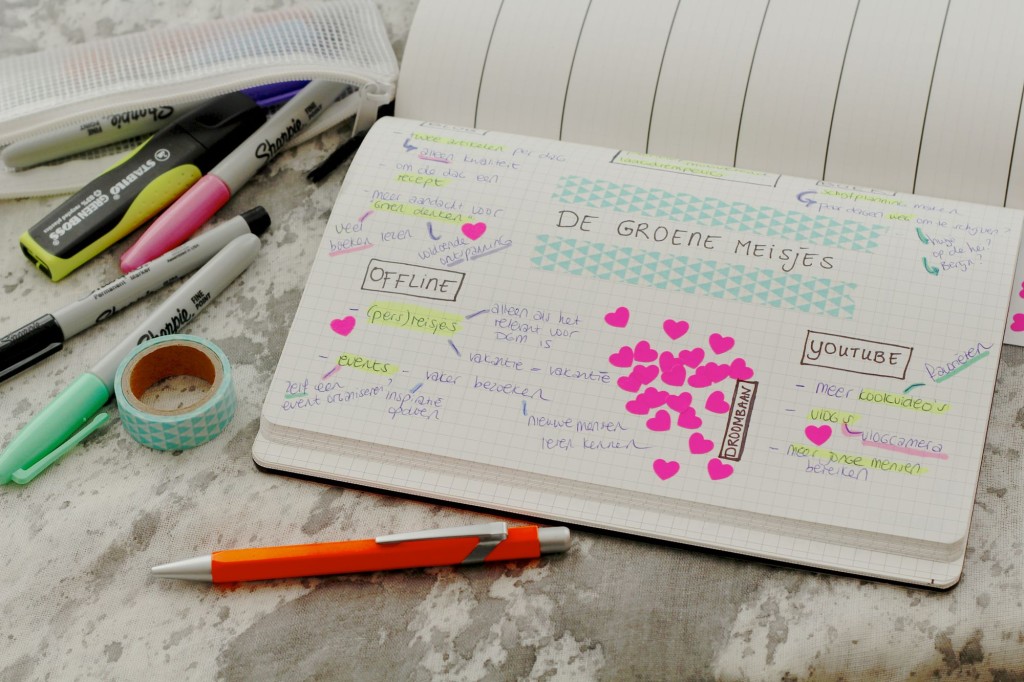 Sharpie
FINE
STABILO
GREEN BOSS
Sharpie
Permanent Marker
Sharpie
FINE POINT
twee artikelen per dag
alleen kwaliteit
om de dag een
recept
- meer aandacht voor
"Groen denken"
veel
boeken lezen
voldoende
ontspanning
OFFLINE
- (pers)reisjes
alleen als het
relevant voor
DGM is
vakantie = vakantie
- events - vaker bezoeken
zelf een
event organiseren?
inspiratie
opdoen
nieuwe mensen
leren kennen
DE GROENE MEISJES
DROOMBAAN
per dag
om te schrijven?
hoog
op de hei?
België?
YOUTUBE
- meer kookvideo's
- vlogs
vlogcamera
- meer jonge mensen
bereiken